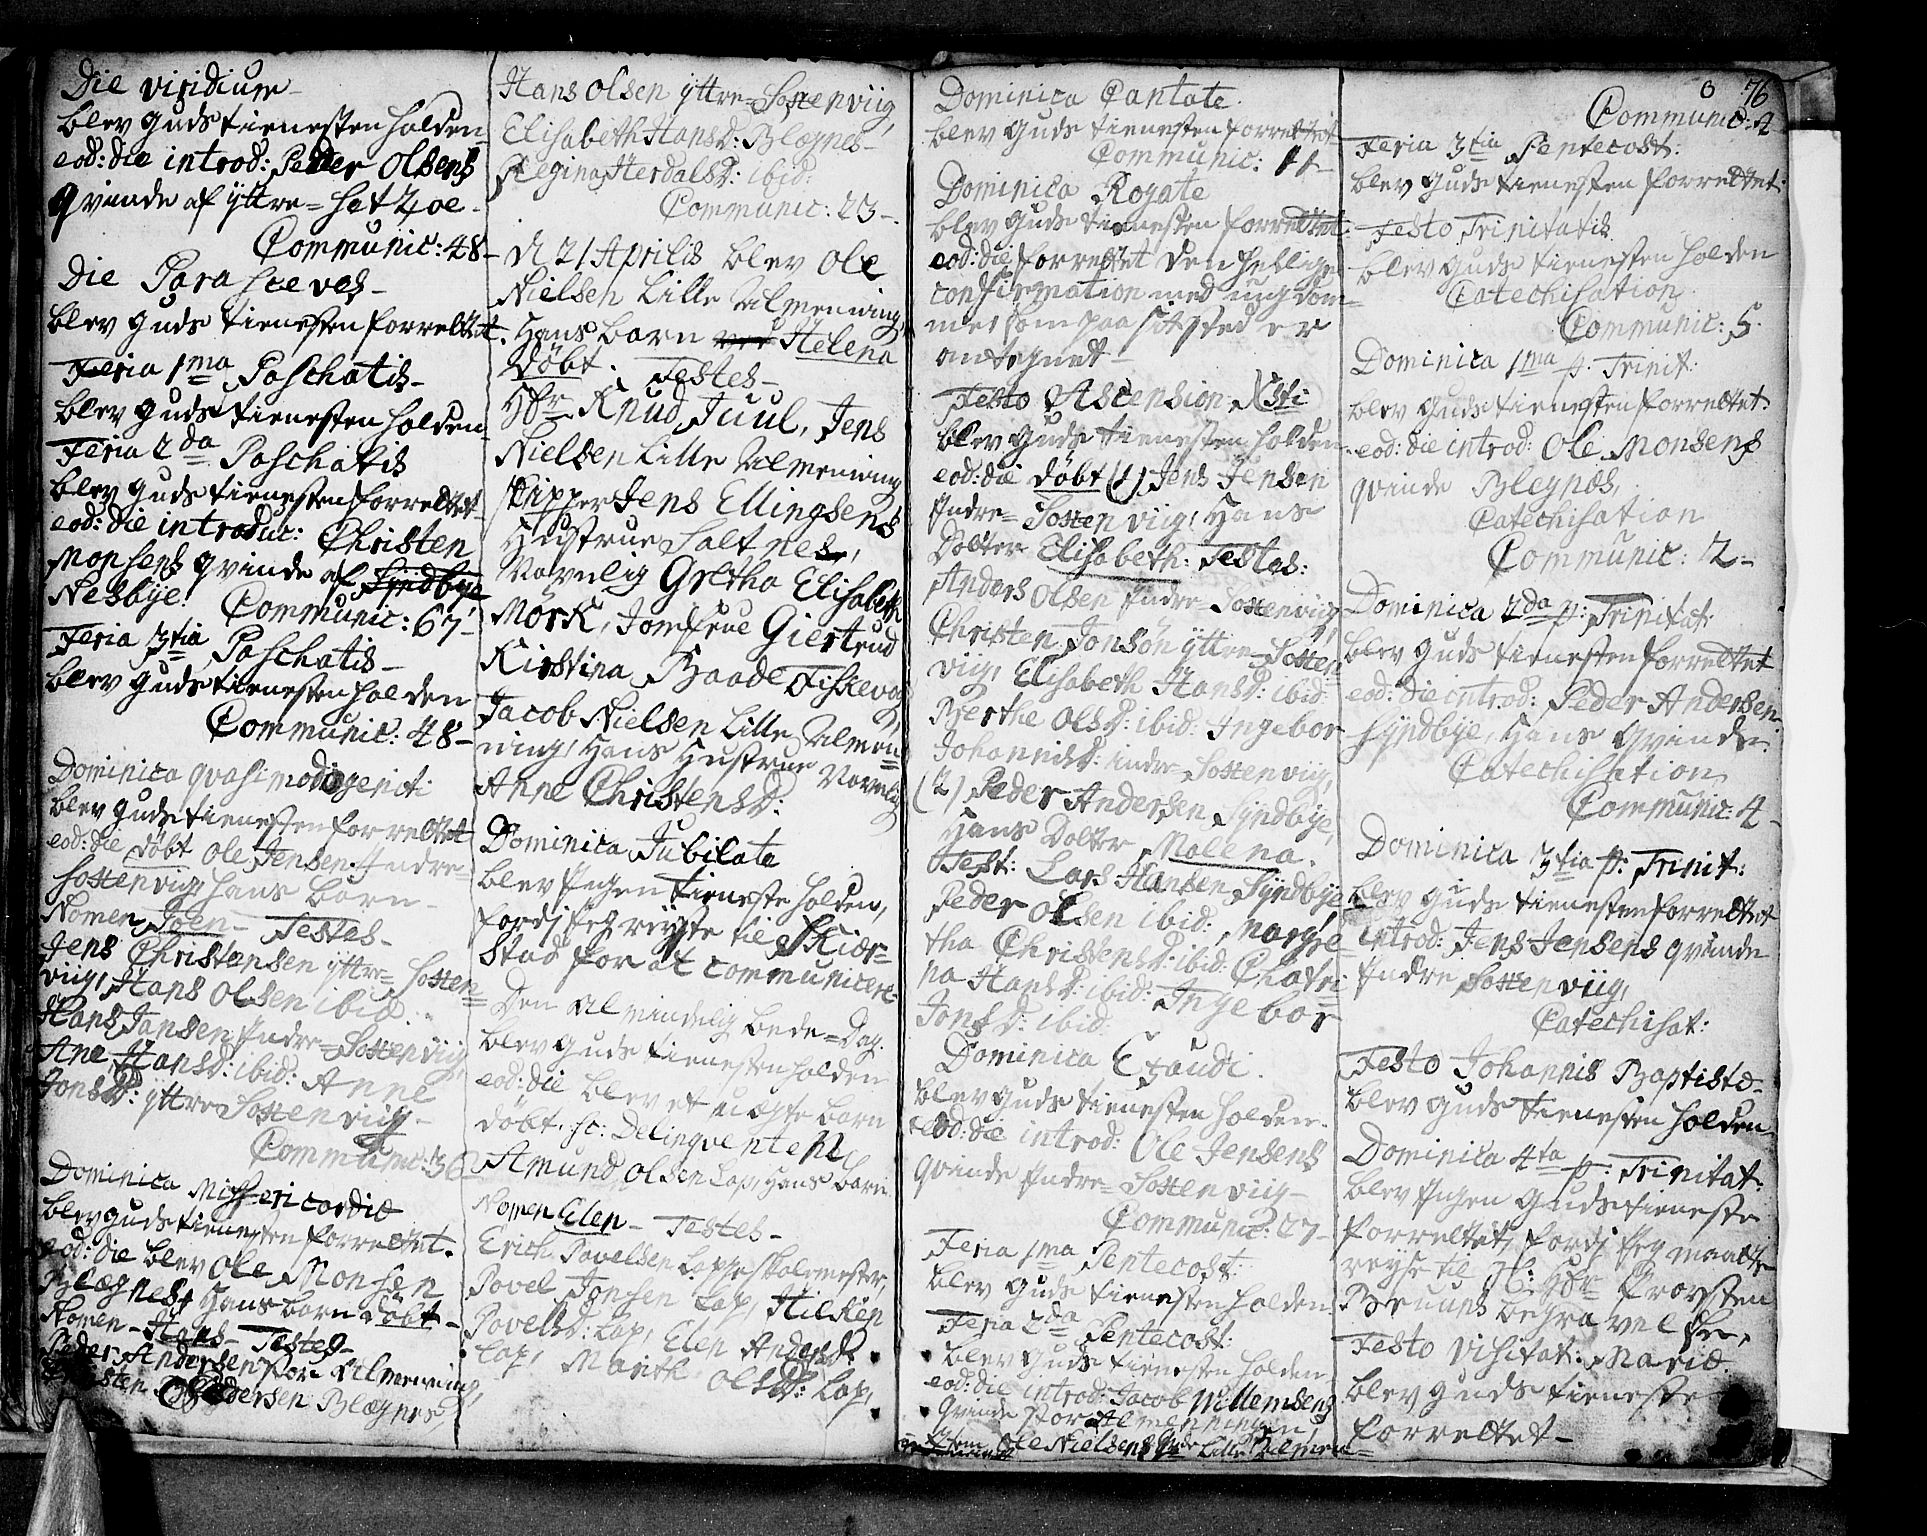 Die viridium
blev Guds tienesten holden
eod: die introd: Peder Olsens
qvinde af yttre=
Communic: 48
Die Parasceves
blev Guds tienesten forrettet
Feria 1ma Paschatis
blev Guds tienesten holden
Feria 2da Paschatis
blev Guds tienesten forrettet
eod: die introduc: Christen
Monsens qvinde af Syndbye
Nesbye. Communic: 67
Feria 3tia Paschatis
blev Guds tienesten holden
Communic: 48
Dominica qvasimodogeniti
blev Guds tienesten forrettet
eod: die døbt Ole Jensen Indre=
Sostenviig hans barn
Nomen Joen Testes
Jens Christensen yttre= Sosten=
viig, Hans Olsen ibid.
Hans Jansen Indre=Sostenviig
Ane Hansd: ibid: Anne
Jonsd: yttre Sostenviig
Communic: 36
Dominica Missericordiæ
blev Guds tienesten forrettet.
eod: die blev Ole Monsen
Blægnes, Hans barn døbt
Nomen Hans Testes
Peder Andersen stor Almenning,
Pedersen Blægnes,
Hans Olsen yttre=Sostenviig,
Elisabeth Hansd: Blægnes
Regina Herdalsd: ibid:
Communic: 23
d 21 Aprilis blev Ole
Nielsen Lille Almenning,
Hans barn Helena
døbt. Testes
Hr Knud Juul, Jens
Nielsen Lille Almenning
skipper Jens Ellingsens
Hustrue Saltnes,
Navnlig Gretha Elisabeth
Mörk, Jomfrue Giertrud
Kirstina Baade
Jacob Nielsen Lille Almen=
ning, Hans Hustrue Navnlig
Anne Christensd:
Dominica Jubilate
blev Ingen tieneste holden,
fordj Jeg reyste til Skier=
stad for at communicere
Den Almindelig bede=Dag
blev Guds tienesten holden
eod: die blev et uægte barn
døbt. sc: Delinqventen
Amund Olsen Lap, Hans barn
Nomen Elen Testes
Erich Povelsen Lap skolemester,
Povel Jonsen Lap,
Povelsd: Lap, Elen Andersd:
Lap, Marith Olsd: Lap,
Dominica Cantate
blev Guds tienesten forrettet
Communic: 11
Dominica Rogate
blev Guds tienesten forrettet
eod: die forrettet den hellige
confirmation med ungdom=
men som paa sit sted er
antegnet
Festo Ascension Xsti
blev Guds tienesten holden
eod: die døbt (1) Jens Jensen
Indre= Sostenviig, Hans
Dotter Elisabeth: Testes:
Anders Olsen Indre= Sostenviig
Christen Jonsøn yttre= Sosten
viig, Elisabeth Hansd: ibid:
Berthe Olsd: ibid: Ingebor
Johannisd: indre Sostenviig,
(2) Peder Andersen Syndbye,
Hans Dotter Malena.
Test: Lars Hansen Syndbye
Peder Olsen ibid: Margre=
tha Christensd: ibid: Chatri
na Hansd: ibid: Ingebor
Jonsd: ibid
Dominica Exaudi.
blev Guds tienesten holden
eod: die introd: Ole Jensens
qvinde Indre= Sostenviig
Communic: 27
Feria 1ma Pentecost:
blev Guds tienesten holden
Feria 2da Pentecost:
blev Guds tienesten holden
eod: die introd: Jacob Willemsens
Qvinde stor Almenning,
Ole Nielsens Lille Almen=
76
Communic: 4
Feria 3tia Pentecost:
blev Guds tienesten forrettet
Festo Trinitatis
blev Guds tienesten holden
Catechisation
Communic: 5
Dominica 1ma p: Trinit:
blev Guds tienesten forrettet
eod: die introd: Ole Monsens
qvinde Blegnæs,
Catechisation
Communic: 2
Dominica 2da p: Trinitat:
blev Guds tienesten forrettet
eod: die introd: Peder Andersen
Syndbye, Hans Qvinde.
Catechisation
Communic: 4
Dominica 3tia p: Trinit:
blev Guds tienesten forrettet
introd: Jens Jensens qvinde
Indre Sostenviig,
Catechisat:
Festo Johannis Baptistæ
blev Guds tienesten holden
Dominica 4ta p: Trinitat:
blev Ingen Gudstieneste
forrettet, fordj Jeg maatte
reyse til Hr Provsten
Bruuns begravelse,
Festo visitat: Mariæ
blev Guds tieneste
forrettet